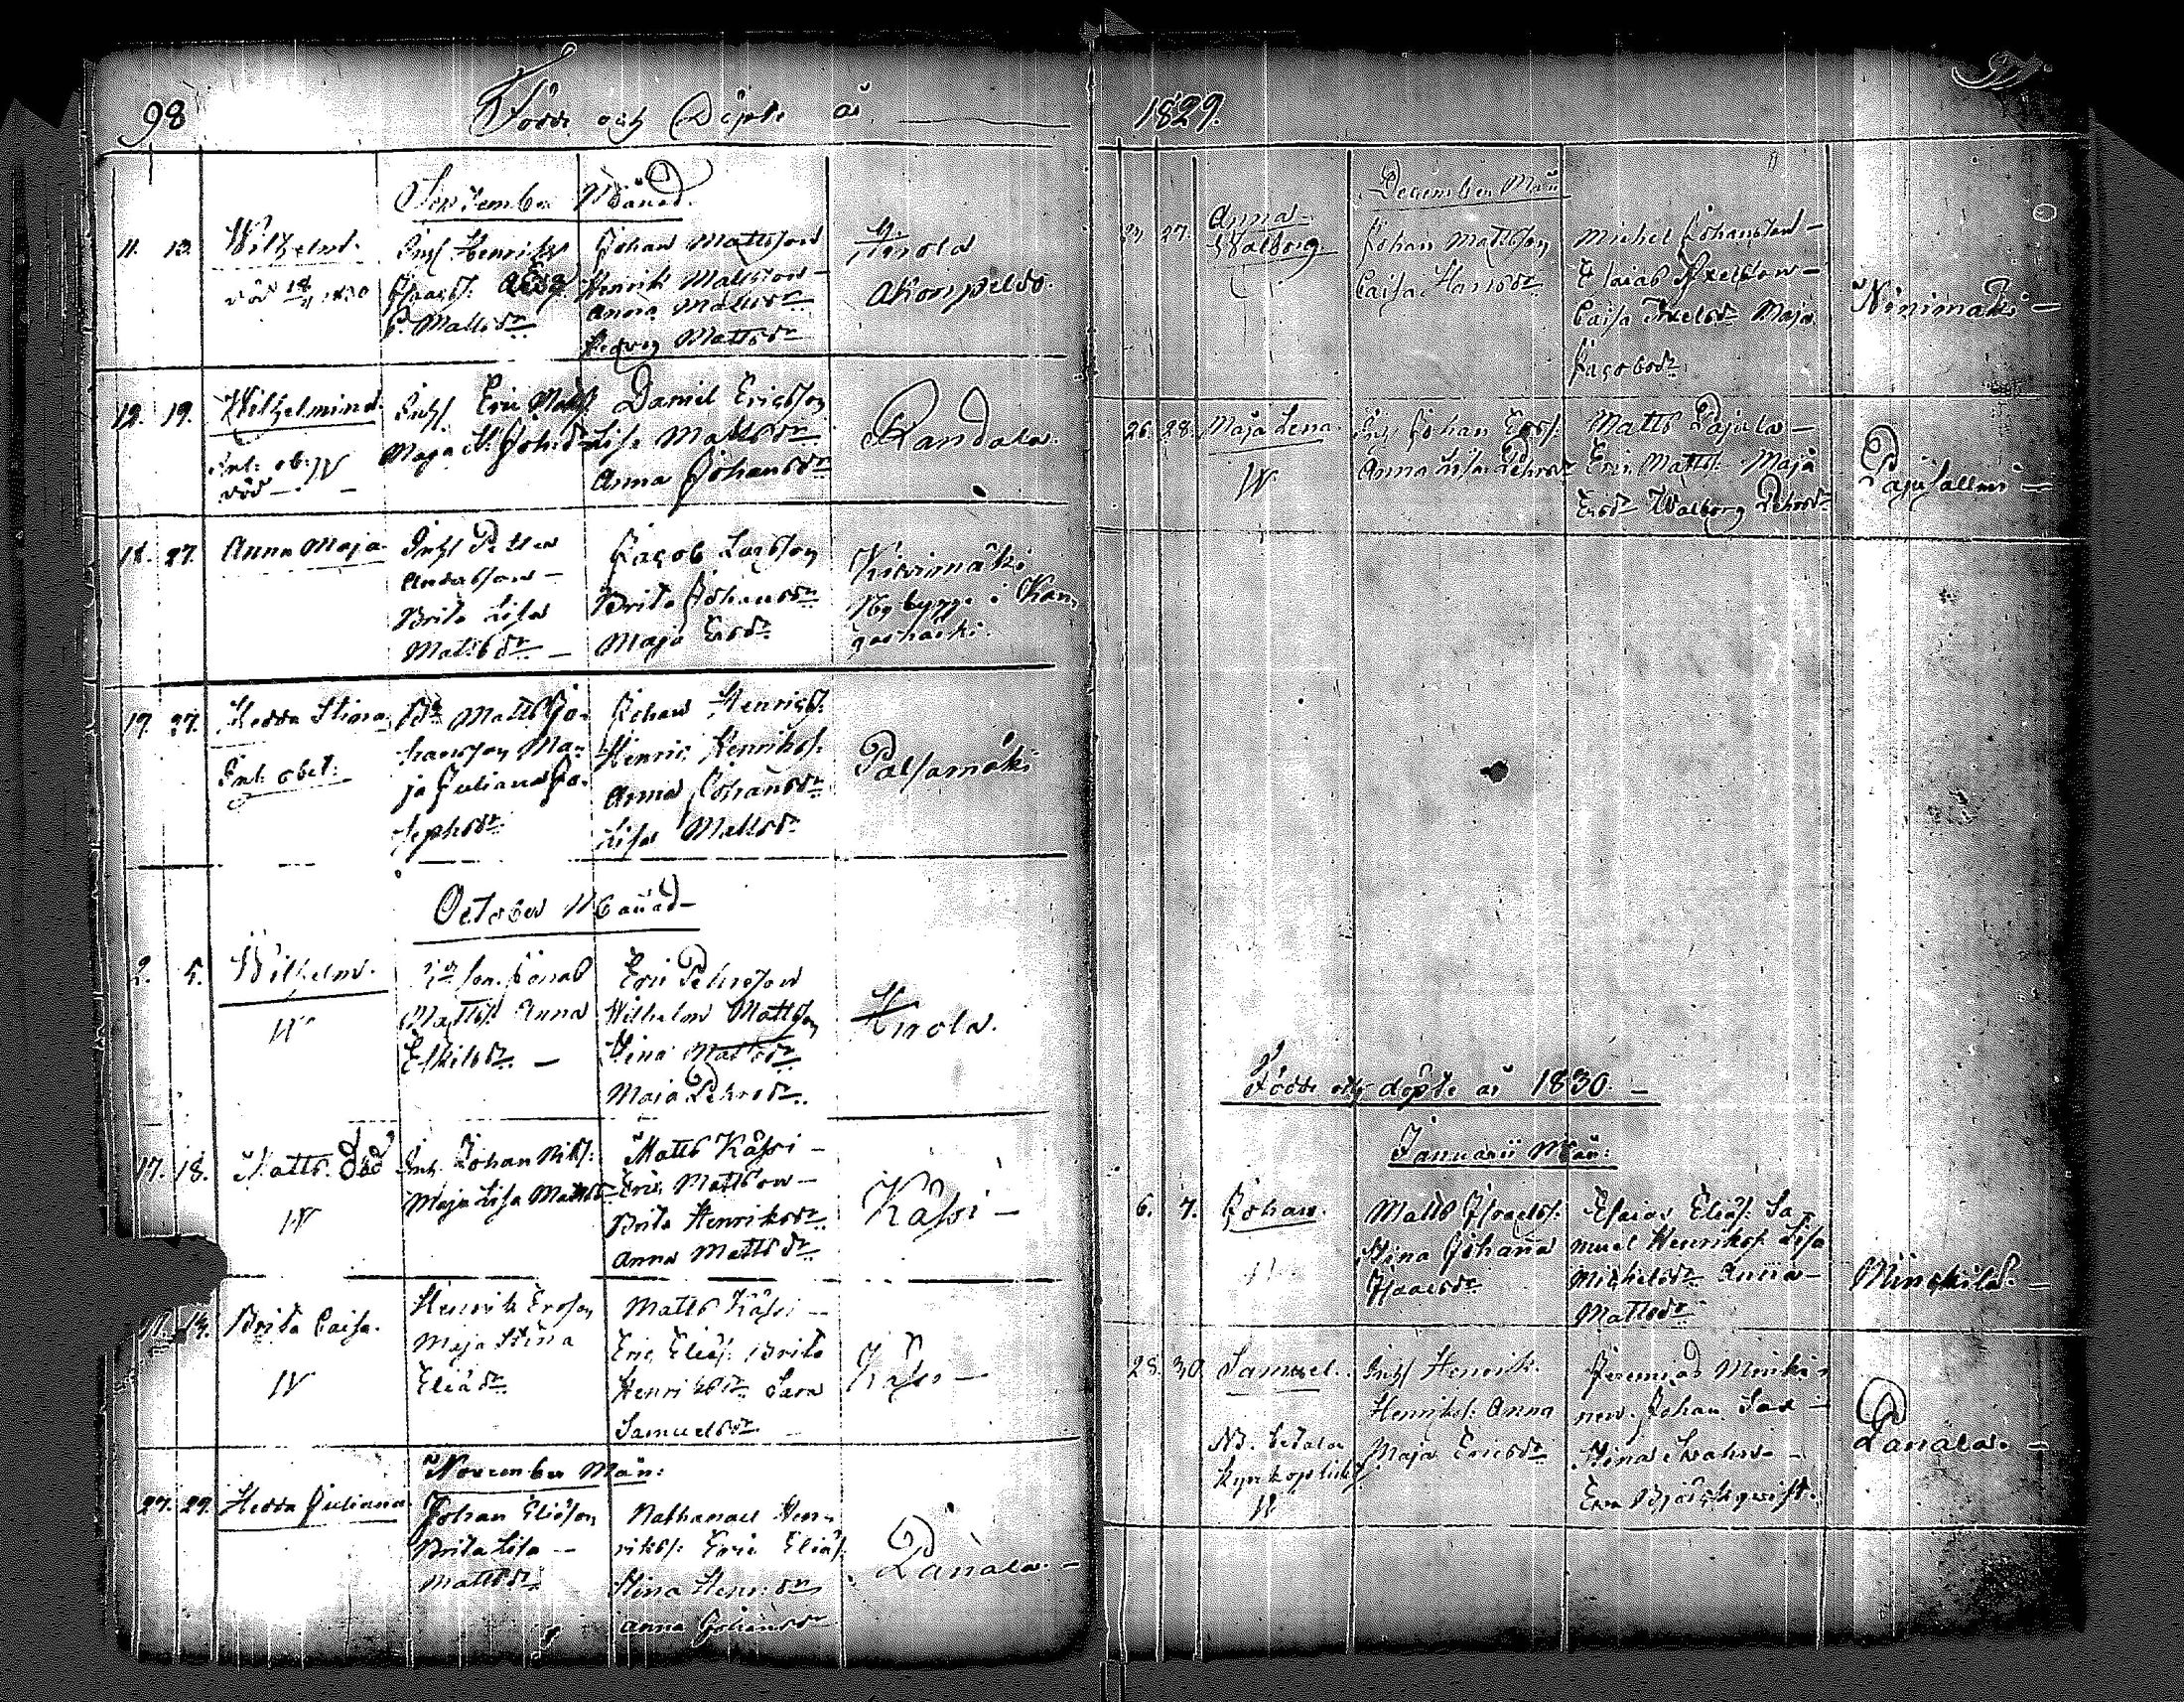 98
Födde och Döpte år
September Månad.
11. 13. Wilhelm.
död 1830
Inhs Henrik
Isaacss.
C. Mattsdr
Johan Mattsson
Henrik Mattsson
Anna Mattsdr
Hedvig Mattsdr
Knola
Akonpeldo.
12. 19. Wilhelmina.
Int. ob. W
död
Inhs. Eric Matts.
Maja H. Joh.dr
Daniel Ericsson
Lisa Mattsdr
Anna Johansdr
Randala.
18. 27. Anna Maja
Inhs Petter
Andersson
Brita Lisa
Mattsdr
Jacob Larsson
Brita Johansdr
Maja Ersdr
Kivimäki
Nybygge i Kan
gashäki.
17. 27. Hedda Stina
Int. obet.
Matts Jo-
hansson Ma-
ja Juliana Jo-
sephsdr
Johan Henricss.
Henric Henrikss.
Anna Johansdr
Lisa Mattsdr
Palsamäki
October Månad
2. 5. Wilhelm.
W
Jonas
Mattss. Anna
Eskilsdr.
Eric Pehrsson
Wilhelm Mattsson
Stina Mattsdr
Maja Pehrsdr.
Knola.
17. 18. Matts. död
W
Inhs. Johan Nils.
Maja Lisa Mattsdr
Matts Kåssi
Eric Mattsson
Brita Henriksdr.
Anna Mattsdr
Kåssi
14. Brita Caisa.
W
Henrik Ersson
Maja Stina
Eliasdr
Matts Kåssi
Eric Eliass. Brita
Henriksdr Sara
Samuelsdr.
Kåssi
November Mån:
27. 29. Hedda Juliana
Johan Eliasson
Brita Lisa
Mattsdr
Nathanael Hen-
rikss. Eric Eliass.
Stina Henr.dr
Anna Johansdr
Panala.
1829.
December Mån
24. 27. Anna
Walborg.
Johan Mattsson
Caisa Hansdr
Michel Johansson
Esaias Axelsson
Caisa Axelsdr Maja
Jacobsdr.
Ninimäki
26. 28. Maja Lena.
W.
Inhs Johan Erss.
Anna Lisa Pehrsdr
Matts Pajula
Eric Mattss. Maja
Ersdr Walborg Pehrsdr
Pajusallmi
Födde och döpte år 1830.
Januarii Mån:
6. 7. Johan.
Matts Isaacss.
Stina Johanna
Isaacsdr
Esaias Eliass. Sa-
muel Henrikss. Lisa
Michelsdr Anna
Mattsdr
Minckilä.
28. 30. Samuel.
Nb. betala
W
Inhs Henrik
Henrikss. Anna
Maja Ericsdr
Jeremias
Johan Sax
Stina Swahn
Eva Björckqwist.
Panala.